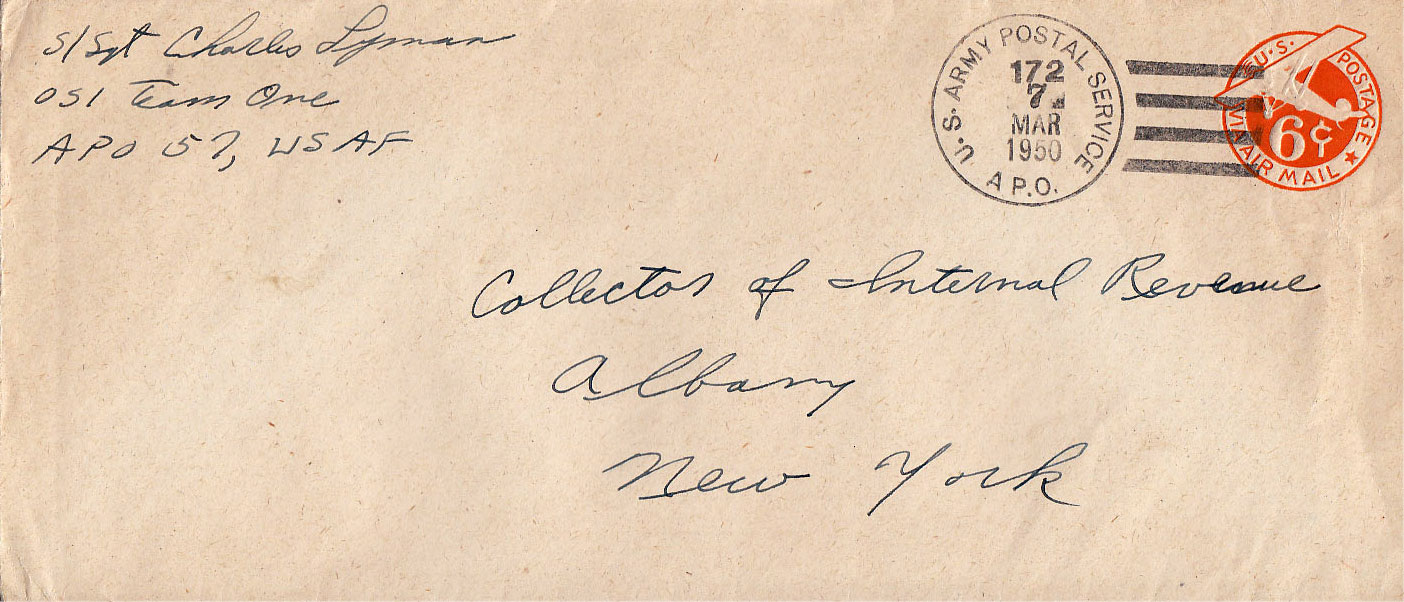 S/Sgt Charles Lyman
OSI Team One
APO 57, USAF
U.S. ARMY POSTAL SERVICE
172
7
MAR
1950
A P.O.
U.S. POSTAGE
6¢
VIA AIR MAIL
Collector of Internal Revenue
Albany
New York